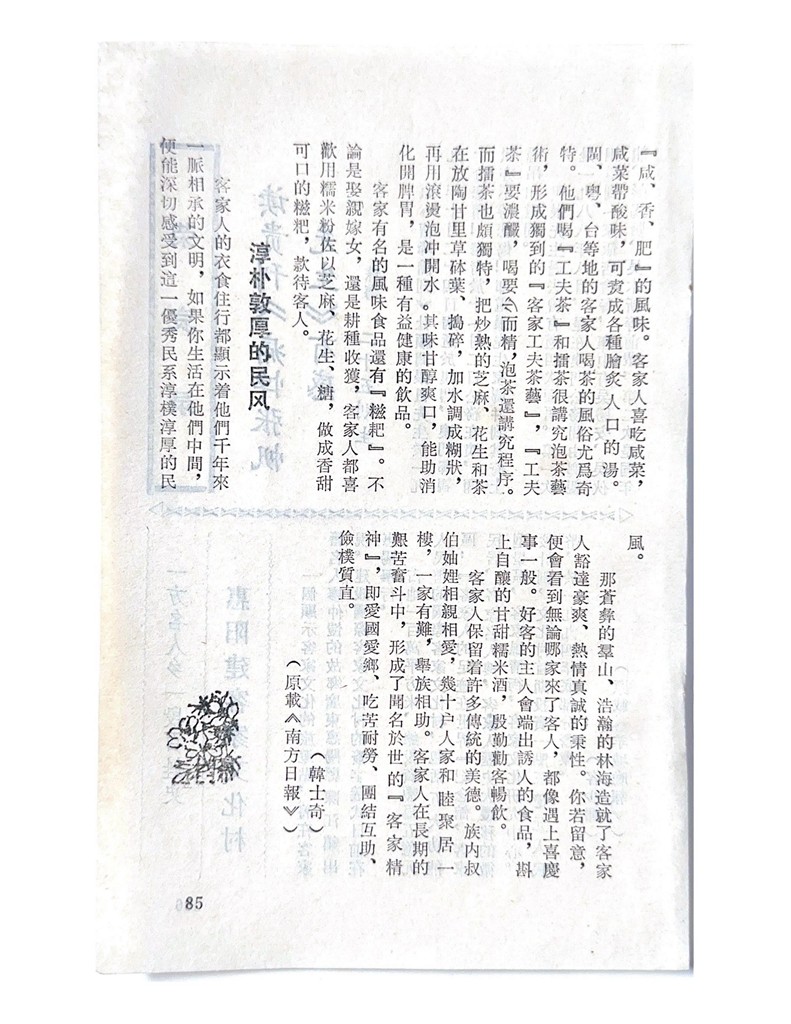 『咸、香、肥』的風味。客家人喜吃咸菜，
咸菜帶酸味，可煑成各種膾炙人口的湯。
閩、粵、台等地的客家人喝茶的風俗尤爲奇
特。他們喝『工夫茶』和擂茶很講究泡茶藝
術，形成獨到的『客家工夫茶藝』，『工夫
茶』要濃釅，喝要少而精，泡茶還講究程序。
而擂茶也頗獨特，把炒熟的芝麻、花生和茶
在放陶甘里草砵葉、搗碎，加水調成糊狀，
再用滾燙泡冲開水。其味甘醇爽口，能助消
化開脾胃，是一種有益健康的飲品。
客家有名的風味食品還有『糍粑』。不
論是娶親嫁女，還是耕種收獲，客家人都喜
歡用糯米粉佐以芝麻、花生、糖，做成香甜
可口的糍粑，款待客人。
淳朴敦厚的民风
客家人的衣食住行都顯示着他們千年來
一脈相承的文明，如果你生活在他們中間，
便能深切感受到這一優秀民系淳樸淳厚的民
風。
那蒼彝的羣山、浩瀚的林海造就了客家
人豁達豪爽、熱情真誠的秉性。你若留意，
便會看到無論哪家來了客人，都像遇上喜慶
事一般。好客的主人會端出誘人的食品，斟
上自釀的甘甜糯米酒，殷勤勸客暢飲。
客家人保留着許多傳統的美德。族內叔
伯妯娌相親相愛，幾十户人家和睦聚居一
樓，一家有難，舉族相助。客家人在長期的
艱苦奮斗中，形成了聞名於世的『客家精
神』，即愛國愛鄉、吃苦耐勞、團結互助、
儉樸質直。
（韓士奇）
（原載《南方日報》）
85